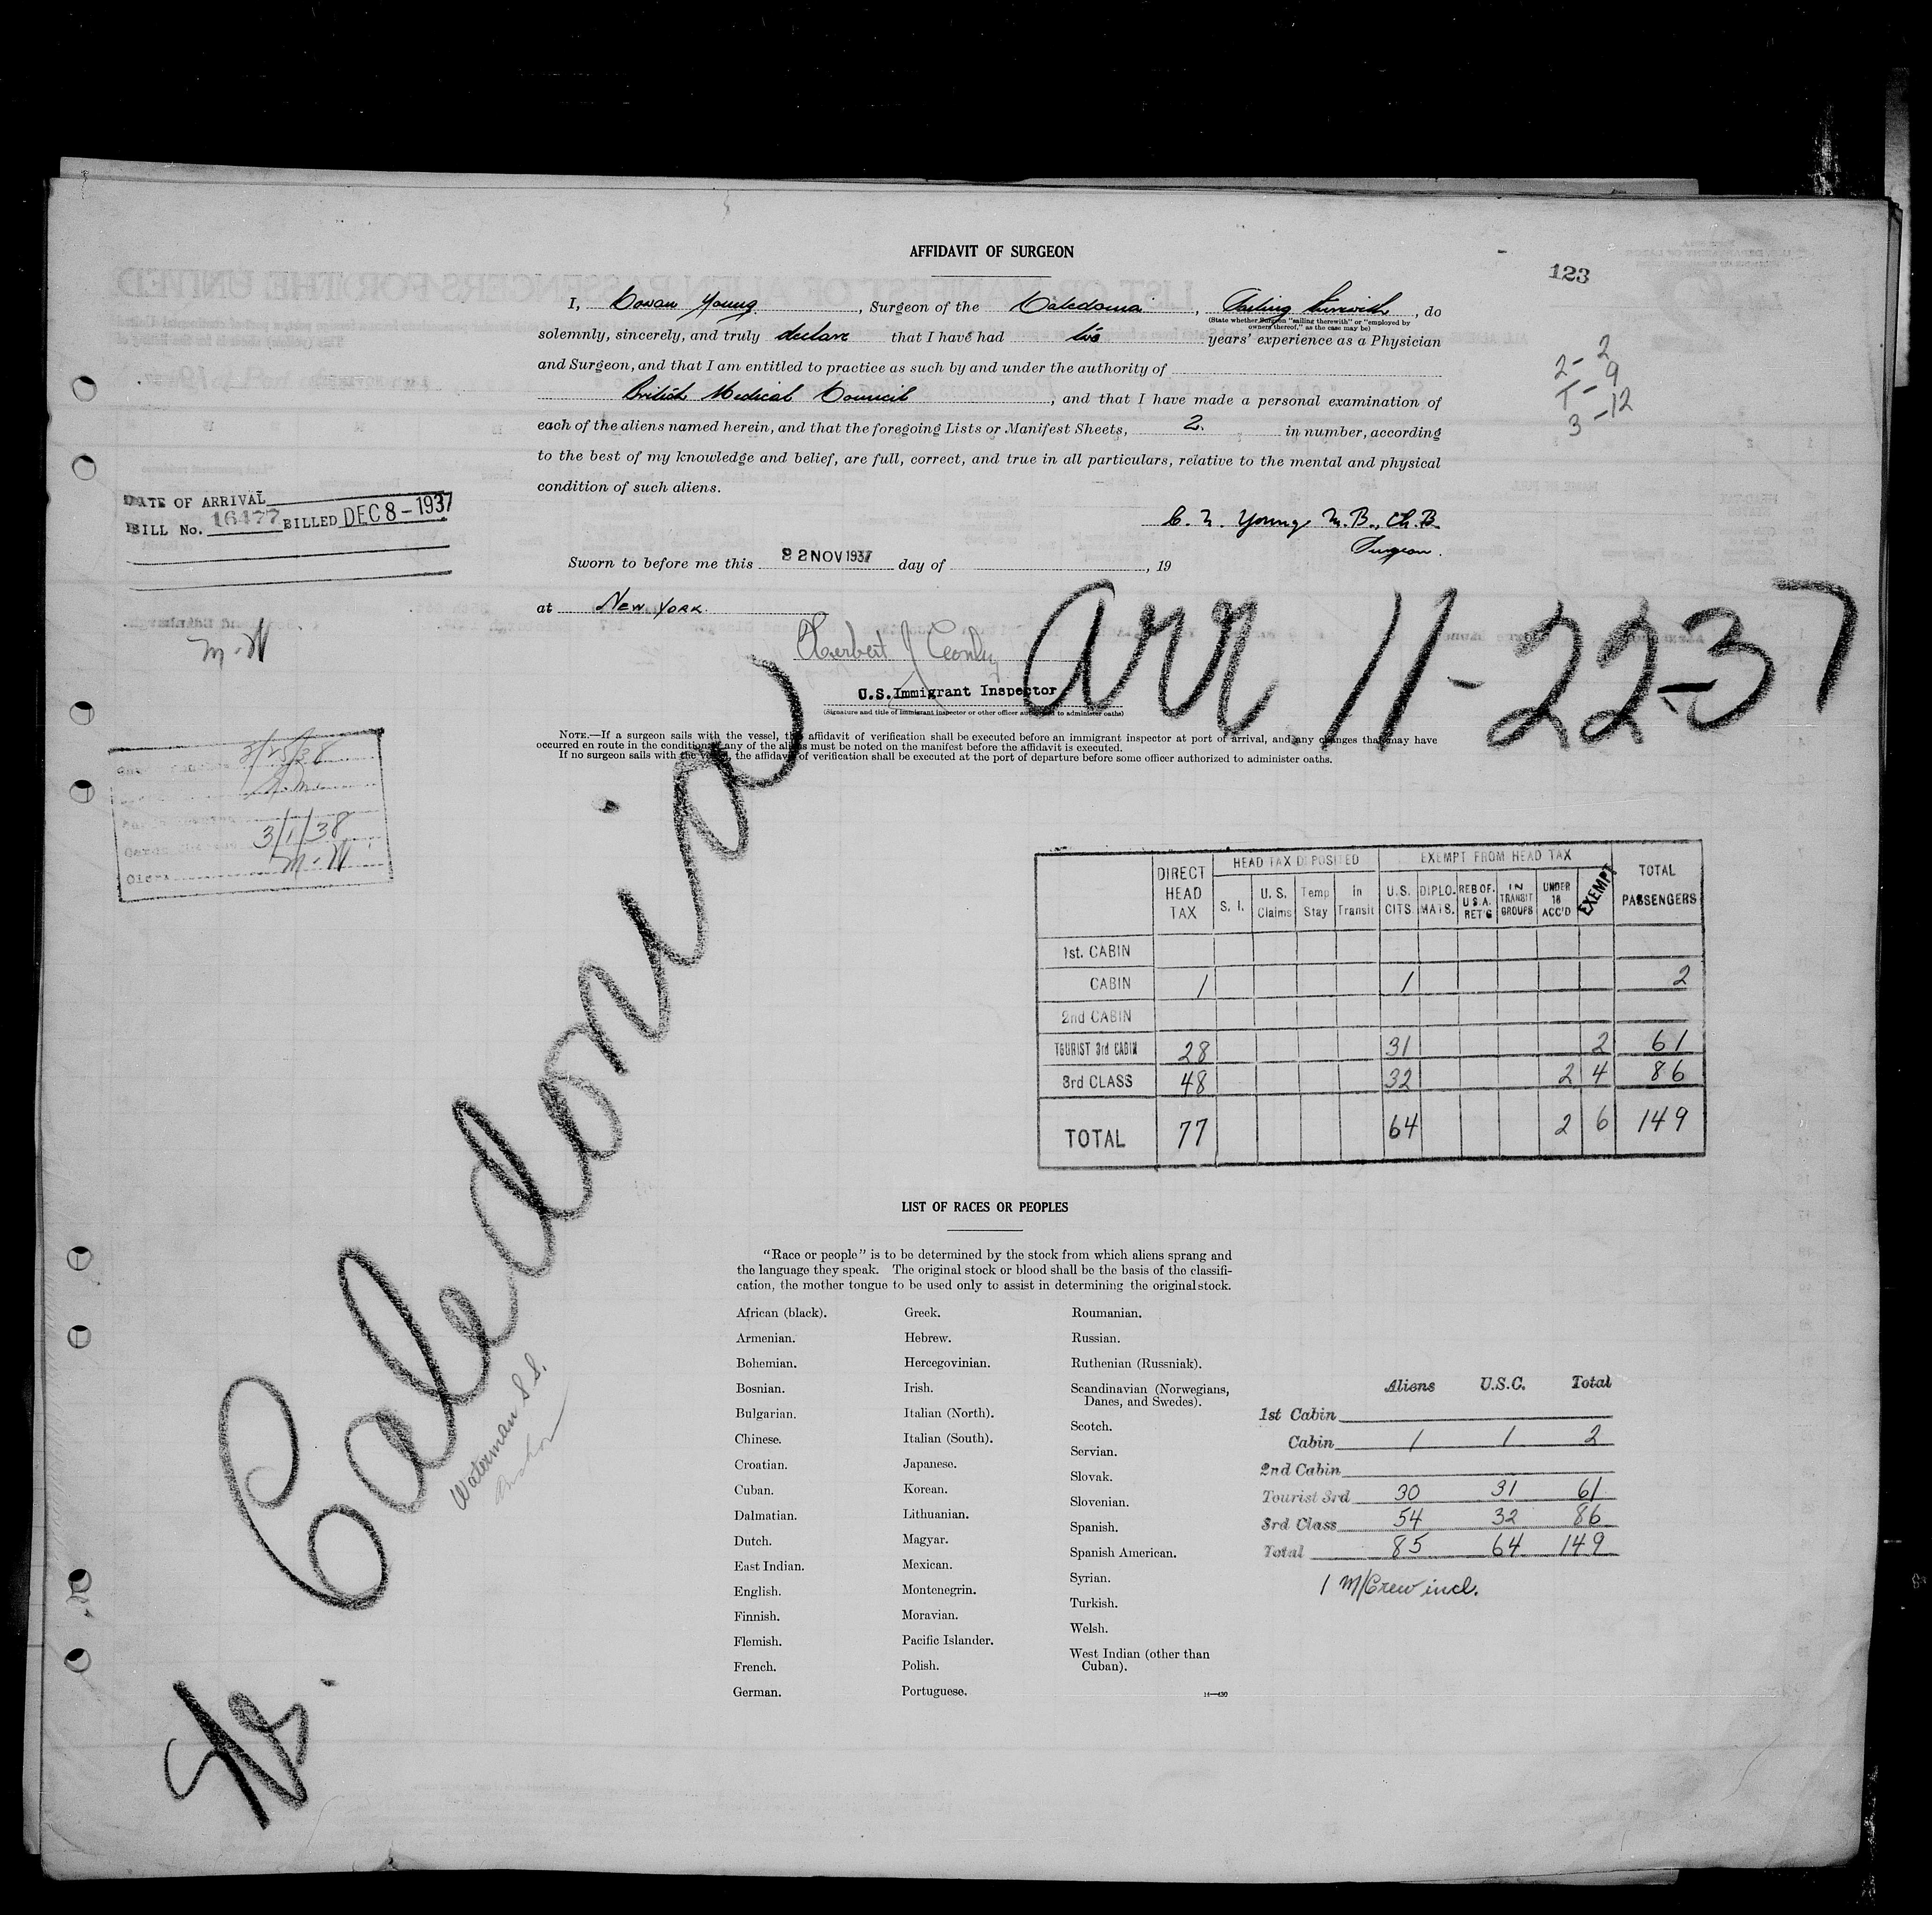 AFFIDAVIT OF SURGEON
123
I, Cowan Young, Surgeon of the Caledonia, Sailing therewith, do
(State whether Surgeon "sailing therewith" or "employed by
owners thereof," as the case may be)
solemnly, sincerely, and truly declare that I have had years' experience as a Physician
and Surgeon, and that I am entitled to practice as such by and under the authority of
British Medical Council, and that I have made a personal examination of
each of the aliens named herein, and that the foregoing Lists or Manifest Sheets, 2. in number, according
to the best of my knowledge and belief, are full, correct, and true in all particulars, relative to the mental and physical
condition of such aliens.
2 - 2
1 - 9
3 - 12
DATE OF ARRIVAL
BILL No. 16477 BILLED DEC 8 - 1937
C. N. Young M.B., Ch.B.
Surgeon.
Sworn to before me this 22 NOV 1937 day of , 19
at New York.
M-W
Herbert J
U.S. Immigrant Inspector
(Signature and title of immigrant inspector or other officer authorized to administer oaths)
Arr 11-22-37
NOTE.—If a surgeon sails with the vessel, the affidavit of verification shall be executed before an immigrant inspector at port of arrival, and any changes that may have
occurred en route in the condition of any of the aliens must be noted on the manifest before the affidavit is executed.
If no surgeon sails with the vessel, the affidavit of verification shall be executed at the port of departure before some officer authorized to administer oaths.
3/25/38
3/1/38
Clerk M-W
DIRECT HEAD TAX HEAD TAX DEPOSITED EXEMPT FROM HEAD TAX TOTAL PASSENGERS
S. I. U. S. Claims Temp Stay in Transit U.S. CITS. DIPLO. MATS. REB OF. U.S.A. RET'G IN TRANSIT GROUPS UNDER 16 ACC'D EXEMPT
1st. CABIN
CABIN 1 1 2
2nd CABIN
TOURIST 3rd CABIN 28 31 2 61
3rd CLASS 48 32 2 4 86
TOTAL 77 64 2 6 149
Caledonia
Waterman S.S.
LIST OF RACES OR PEOPLES
"Race or people" is to be determined by the stock from which aliens sprang and
the language they speak. The original stock or blood shall be the basis of the classifi-
cation, the mother tongue to be used only to assist in determining the original stock.
African (black).
Armenian.
Bohemian.
Bosnian.
Bulgarian.
Chinese.
Croatian.
Cuban.
Dalmatian.
Dutch.
East Indian.
English.
Finnish.
Flemish.
French.
German.
Greek.
Hebrew.
Hercegovinian.
Irish.
Italian (North).
Italian (South).
Japanese.
Korean.
Lithuanian.
Magyar.
Mexican.
Montenegrin.
Moravian.
Pacific Islander.
Polish.
Portuguese.
Roumanian.
Russian.
Ruthenian (Russniak).
Scandinavian (Norwegians,
Danes, and Swedes).
Scotch.
Servian.
Slovak.
Slovenian.
Spanish.
Spanish American.
Syrian.
Turkish.
Welsh.
West Indian (other than
Cuban).
14—430
Aliens U.S.C. Total
1st Cabin
Cabin 1 1 2
2nd Cabin
Tourist 3rd 30 31 61
3rd Class 54 32 86
Total 85 64 149
1 M/Crew incl.